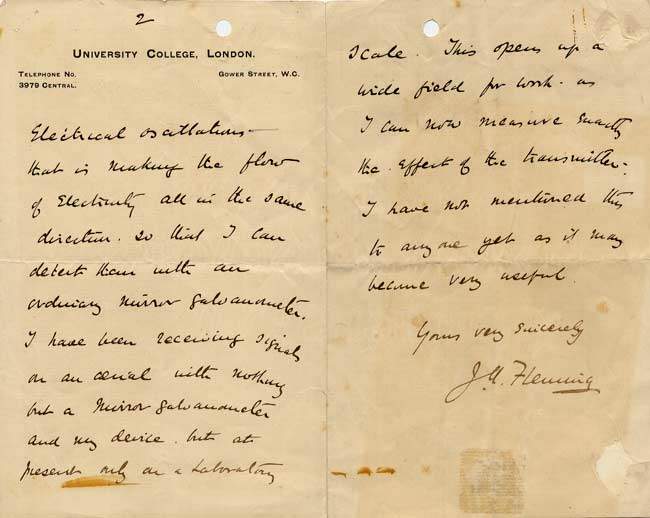 2
UNIVERSITY COLLEGE, LONDON.
TELEPHONE NO.
3979 CENTRAL.
GOWER STREET, W.C.
Electrical oscillations –
that is making the flow
of Electricity all in the same
direction. So that I can
detect them with an
ordinary mirror Galvanometer.
I have been receiving signals
on an aerial with nothing
but a mirror galvanometer
and my device. but at
present only on a Laboratory
scale. This opens up a
wide field for work – as
I can now measure exactly
the effect of the transmitter.
I have not mentioned this
to anyone yet as it may
become very useful.
Yours very sincerely
J.A. Fleming